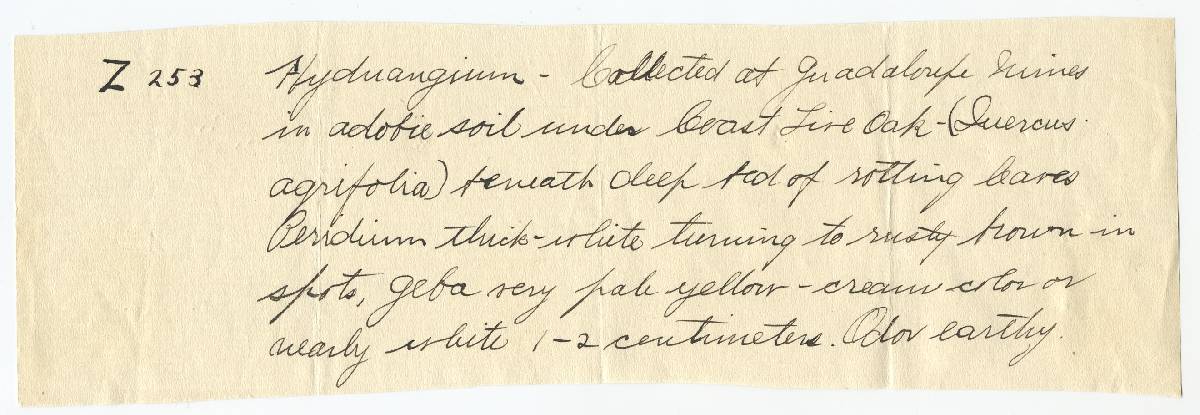 Z 253 Hydnangium - Collected at Guadaloupe Mines
in adobie soil under Coast Live Oak - (Quercus
agrifolia) beneath deep bed of rotting leaves
Peridium thick-white turning to rusty brown in
spots, Gleba very pale yellow - cream color or
nearly white 1-2 centimeters. Odor earthy.